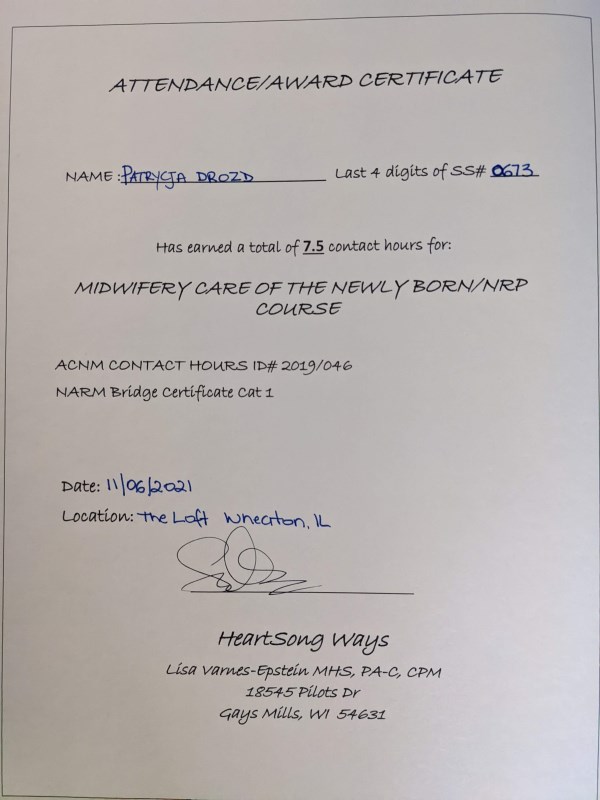 ATTENDANCE/AWARD CERTIFICATE
NAME: PATRYCJA DROZD Last 4 digits of SS# 0673
Has earned a total of 7.5 contact hours for:
MIDWIFERY CARE OF THE NEWLY BORN/NRP
COURSE
ACNM CONTACT HOURS ID# 2019/046
NARM Bridge Certificate Cat 1
Date: 11/06/2021
Location: The Loft Wheaton, IL
HeartSong Ways
Lisa Varnes-Epstein MHS, PA-C, CPM
18545 Pilots Dr
Gays Mills, WI 54631